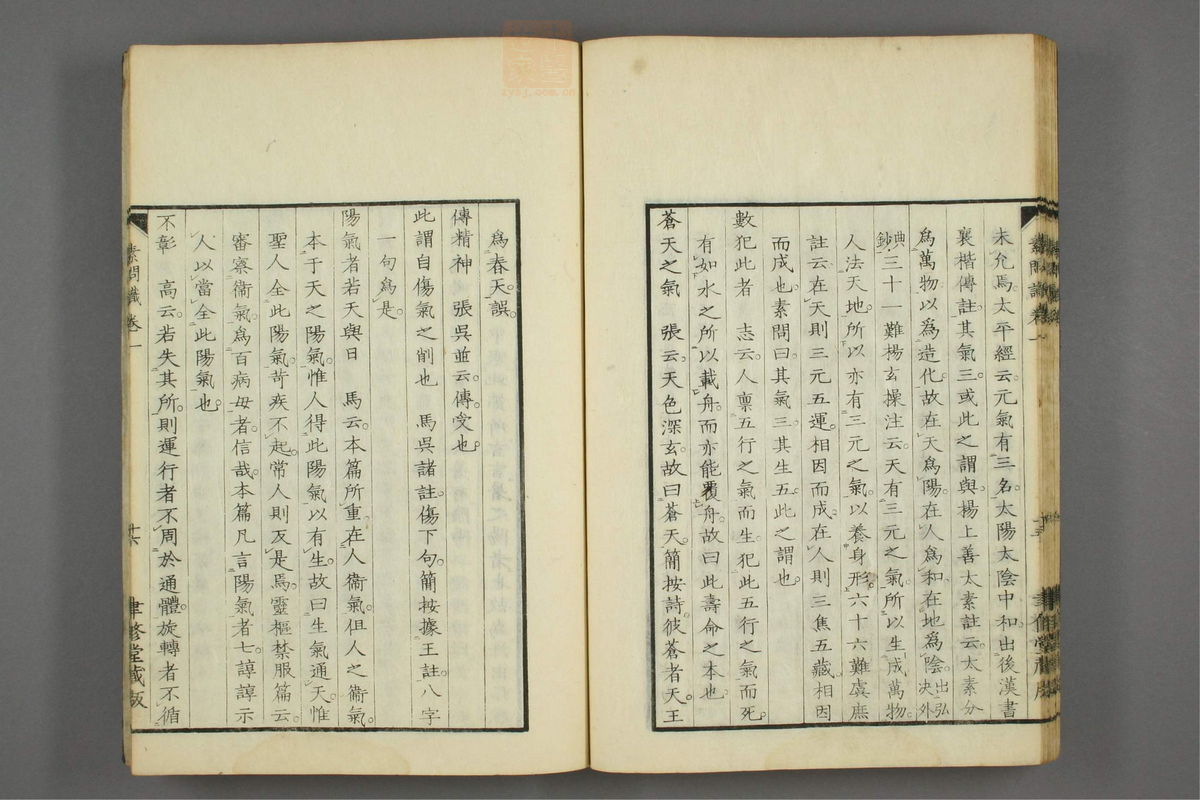 未允焉太平經云元氣有三名太陽太陰中和出後漢書
襄楷傳註其氣三或此之謂與楊上善太素註云太素分
爲萬物以爲造化故在天爲陽在人爲和在地爲陰出弘決外
典鈔三十一難楊玄操注云天有三元之氣所以生成萬物
人法天地所以亦有三元之氣以養身形六十六難虞庶
註云在天則三元五運相因而成在人則三焦五藏相因
而成也素問曰其氣三其生五此之謂也
數犯此者　志云人禀五行之氣而生犯此五行之氣而死
有如水之所以載舟而亦能覆舟故曰此壽命之本也
蒼天之氣　張云天色深玄故曰蒼天簡按詩彼蒼者天王
爲春天誤
傳精神　張吳並云傳受也
此謂自傷氣之削也　馬吳諸註傷下句簡按據王註八字
一句爲是
陽氣者若天與日　馬云本篇所重在人衞氣但人之衞氣
本于天之陽氣惟人得此陽氣以有生故曰生氣通天惟
聖人全此陽氣苛疾不起常人則反是焉靈樞禁服篇云
審察衞氣爲百病母者信哉本篇凡言陽氣者七諄諄示
人以當全此陽氣也
不彰　高云若失其所則運行者不周於通體旋轉者不循
素問識　卷一
十六
聿修堂藏版